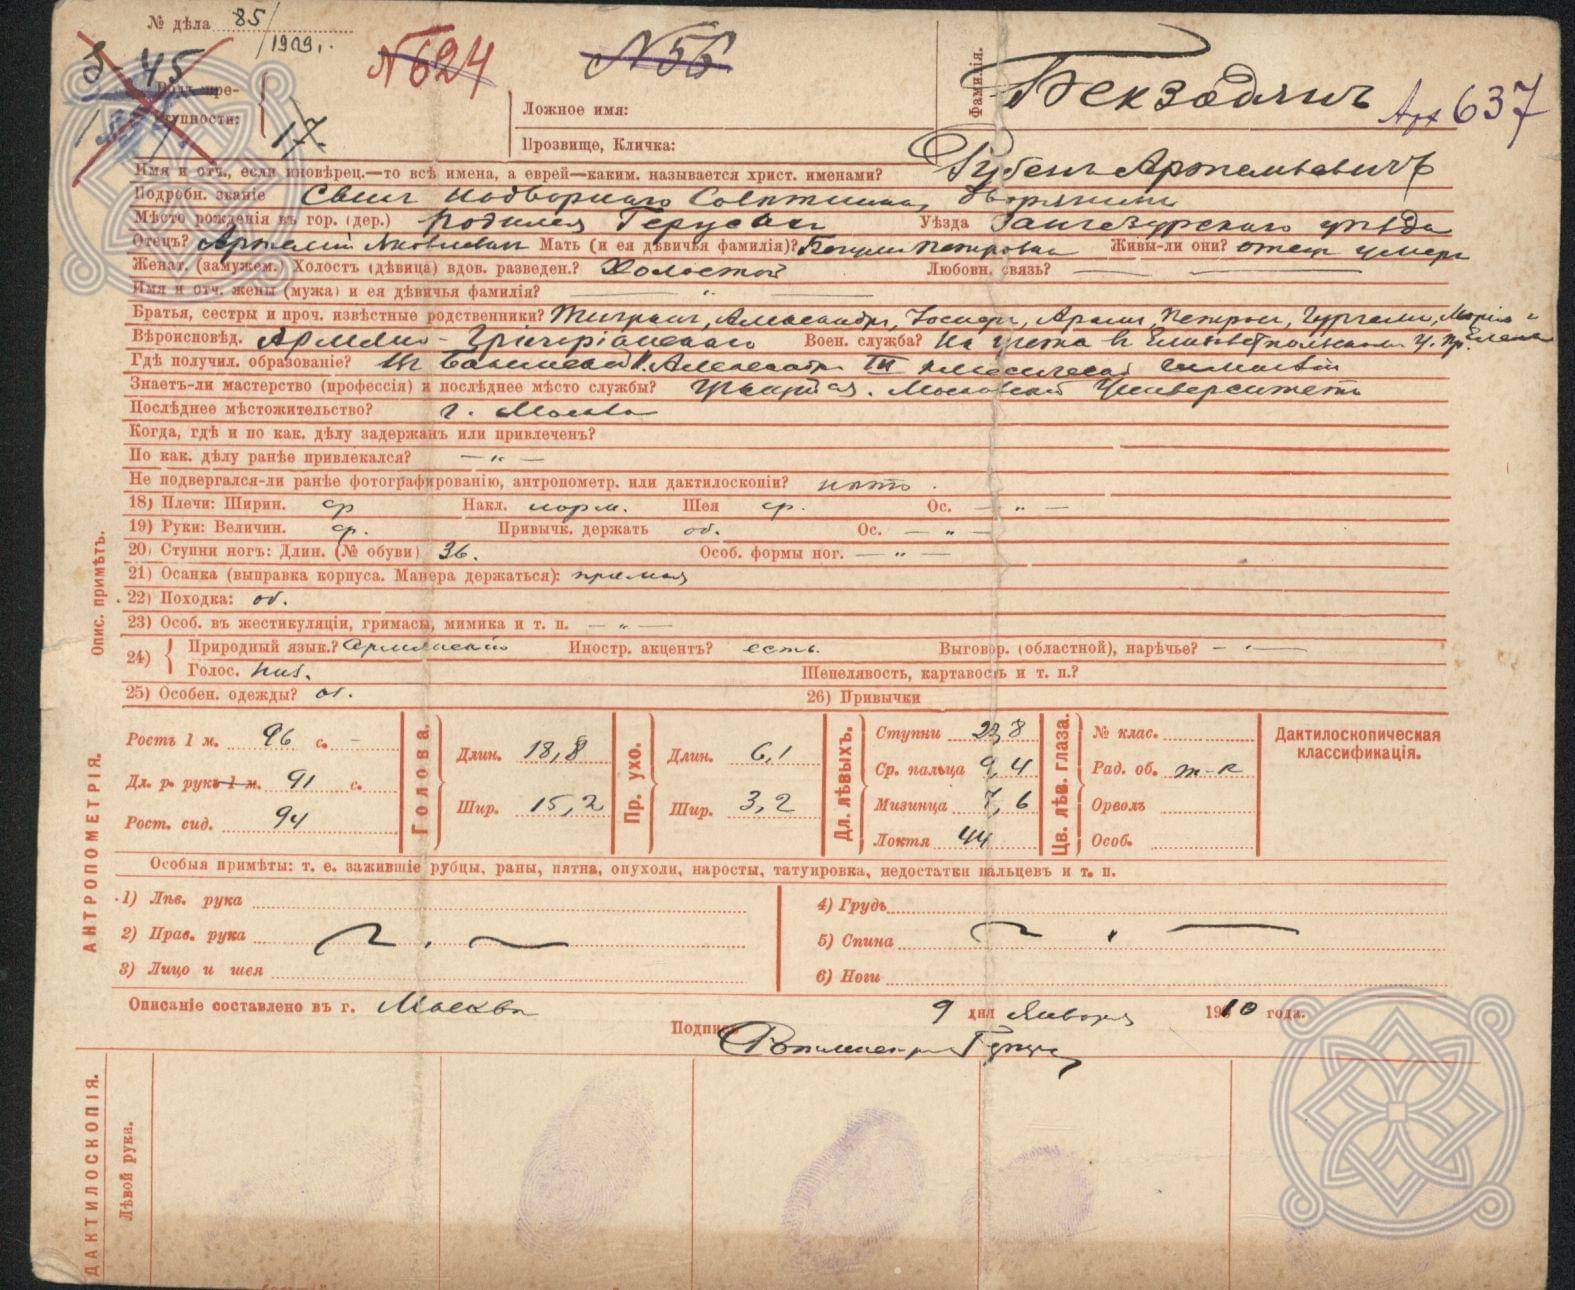 № дѣла 85/1909 г.
№ 624
№ 56
3-45
Родъ пре-
ступности:
17.
Ложное имя:
Прозвище, Кличка:
Фамилія. Бекзадянъ
Арх 637
Имя и отч., если иновѣрец.—то всѣ имена, а еврей—каким. называется христ. именами? Рубенъ Артемьевичъ
Подробн. званіе Сынъ надворнаго Совѣтника, дворянинъ
Мѣсто рожденія въ гор. (дер.) родился Герусы Уѣзда Зангезурскаго уѣзда
Отецъ? Артемій Яковлевичъ Мать (и ея дѣвичья фамилія)? Петровна Живы-ли они? отецъ умеръ
Женат. (замужем.) Холостъ (дѣвица) вдов. разведен.? Холостой Любовн. связь? — —
Имя и отч. жены (мужа) и ея дѣвичья фамилія? — „ —
Братья, сестры и проч. извѣстные родственники? Тигранъ, Александръ, Іосифъ, Арамъ, Петросъ, Гургенъ, Марія и Елена
Вѣроисповѣд. Армяно-Григоріанскаго Воен. служба? На учетѣ въ Елисаветпольскомъ у. пр.
Гдѣ получил. образованіе? Въ Бакинской И. Александра III классической гимназіи
Знаетъ-ли мастерство (профессія) и послѣднее мѣсто службы? Учащійся. Московскій Университетъ
Послѣднее мѣстожительство? г. Москва
Когда, гдѣ и по как. дѣлу задержанъ или привлеченъ?
По как. дѣлу ранѣе привлекался? — „ —
Не подвергался-ли ранѣе фотографированію, антропометр. или дактилоскопіи? нѣтъ.
Опис. примѣтъ.
18) Плечи: Ширин. ср Накл. норм. Шея ср. Ос. — „ —
19) Руки: Величин. ср. Привычк. держать об. Ос. — „ —
20) Ступни ногъ: Длин. (№ обуви) 36. Особ. формы ног. — „ —
21) Осанка (выправка корпуса. Манера держаться): прямая
22) Походка: об.
23) Особ. въ жестикуляціи, гримасы, мимика и т. п. — „ —
24) Природный язык.? Армянскій Иностр. акцентъ? есть. Выговор. (областной), нарѣчье? — „ —
Голос. низ. Шепелявость, картавость и т. п.?
25) Особен. одежды? об. 26) Привычки
АНТРОПОМЕТРІЯ.
Ростъ 1 м. 96 с. —
Дл. р. рукъ 1 м. 91 с.
Рост. сид. 94
Голова.
Длин. 18,8
Шир. 15,2
Пр. ухо.
Длин. 6,1
Шир. 3,2
Дл. лѣвыхъ.
Ступни 28,8
Ср. пальца 9,4
Мизинца 7,6
Локтя 44
Цв. лѣв. глаза.
№ клас.
Рад. об. т-к
Ореолъ
Особ.
Дактилоскопическая
классификація.
Особыя примѣты: т. е. зажившіе рубцы, раны, пятна, опухоли, наросты, татуировка, недостатки пальцевъ и т. п.
1) Лѣв. рука
2) Прав. рука
3) Лицо и шея
4) Грудь
5) Спина
6) Ноги
Описаніе составлено въ г. Москва 9 дня Января 1910 года.
Подпись
ДАКТИЛОСКОПІЯ.
Лѣвой руки.